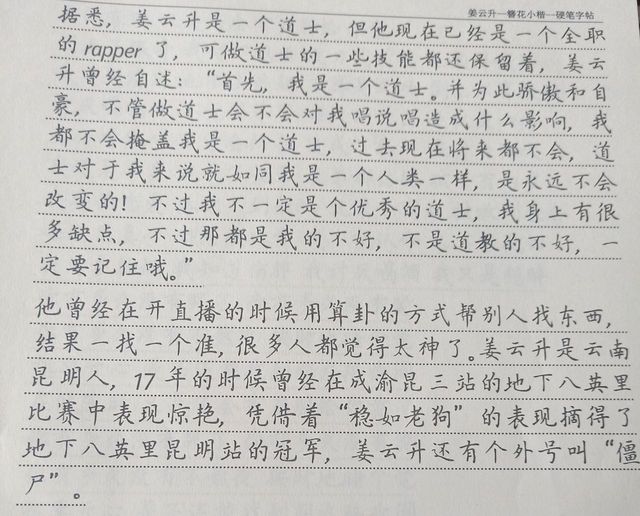 姜云升—簪花小楷—硬笔字帖
据悉，姜云升是一个道士，但他现在已经是一个全职
的rapper了，可做道士的一些技能都还保留着，姜云
升曾经自述：“首先，我是一个道士。并为此骄傲和自
豪，不管做道士会不会对我唱说唱造成什么影响，我
都不会掩盖我是一个道士，过去现在将来都不会，道
士对于我来说就如同我是一个人类一样，是永远不会
改变的！不过我不一定是个优秀的道士，我身上有很
多缺点，不过那都是我的不好，不是道教的不好，一
定要记住哦。”
他曾经在开直播的时候用算卦的方式帮别人找东西，
结果一找一个准，很多人都觉得太神了。姜云升是云南
昆明人，17年的时候曾经在成渝昆三站的地下八英里
比赛中表现惊艳，凭借着“稳如老狗”的表现摘得了
地下八英里昆明站的冠军，姜云升还有个外号叫“僵
尸”。